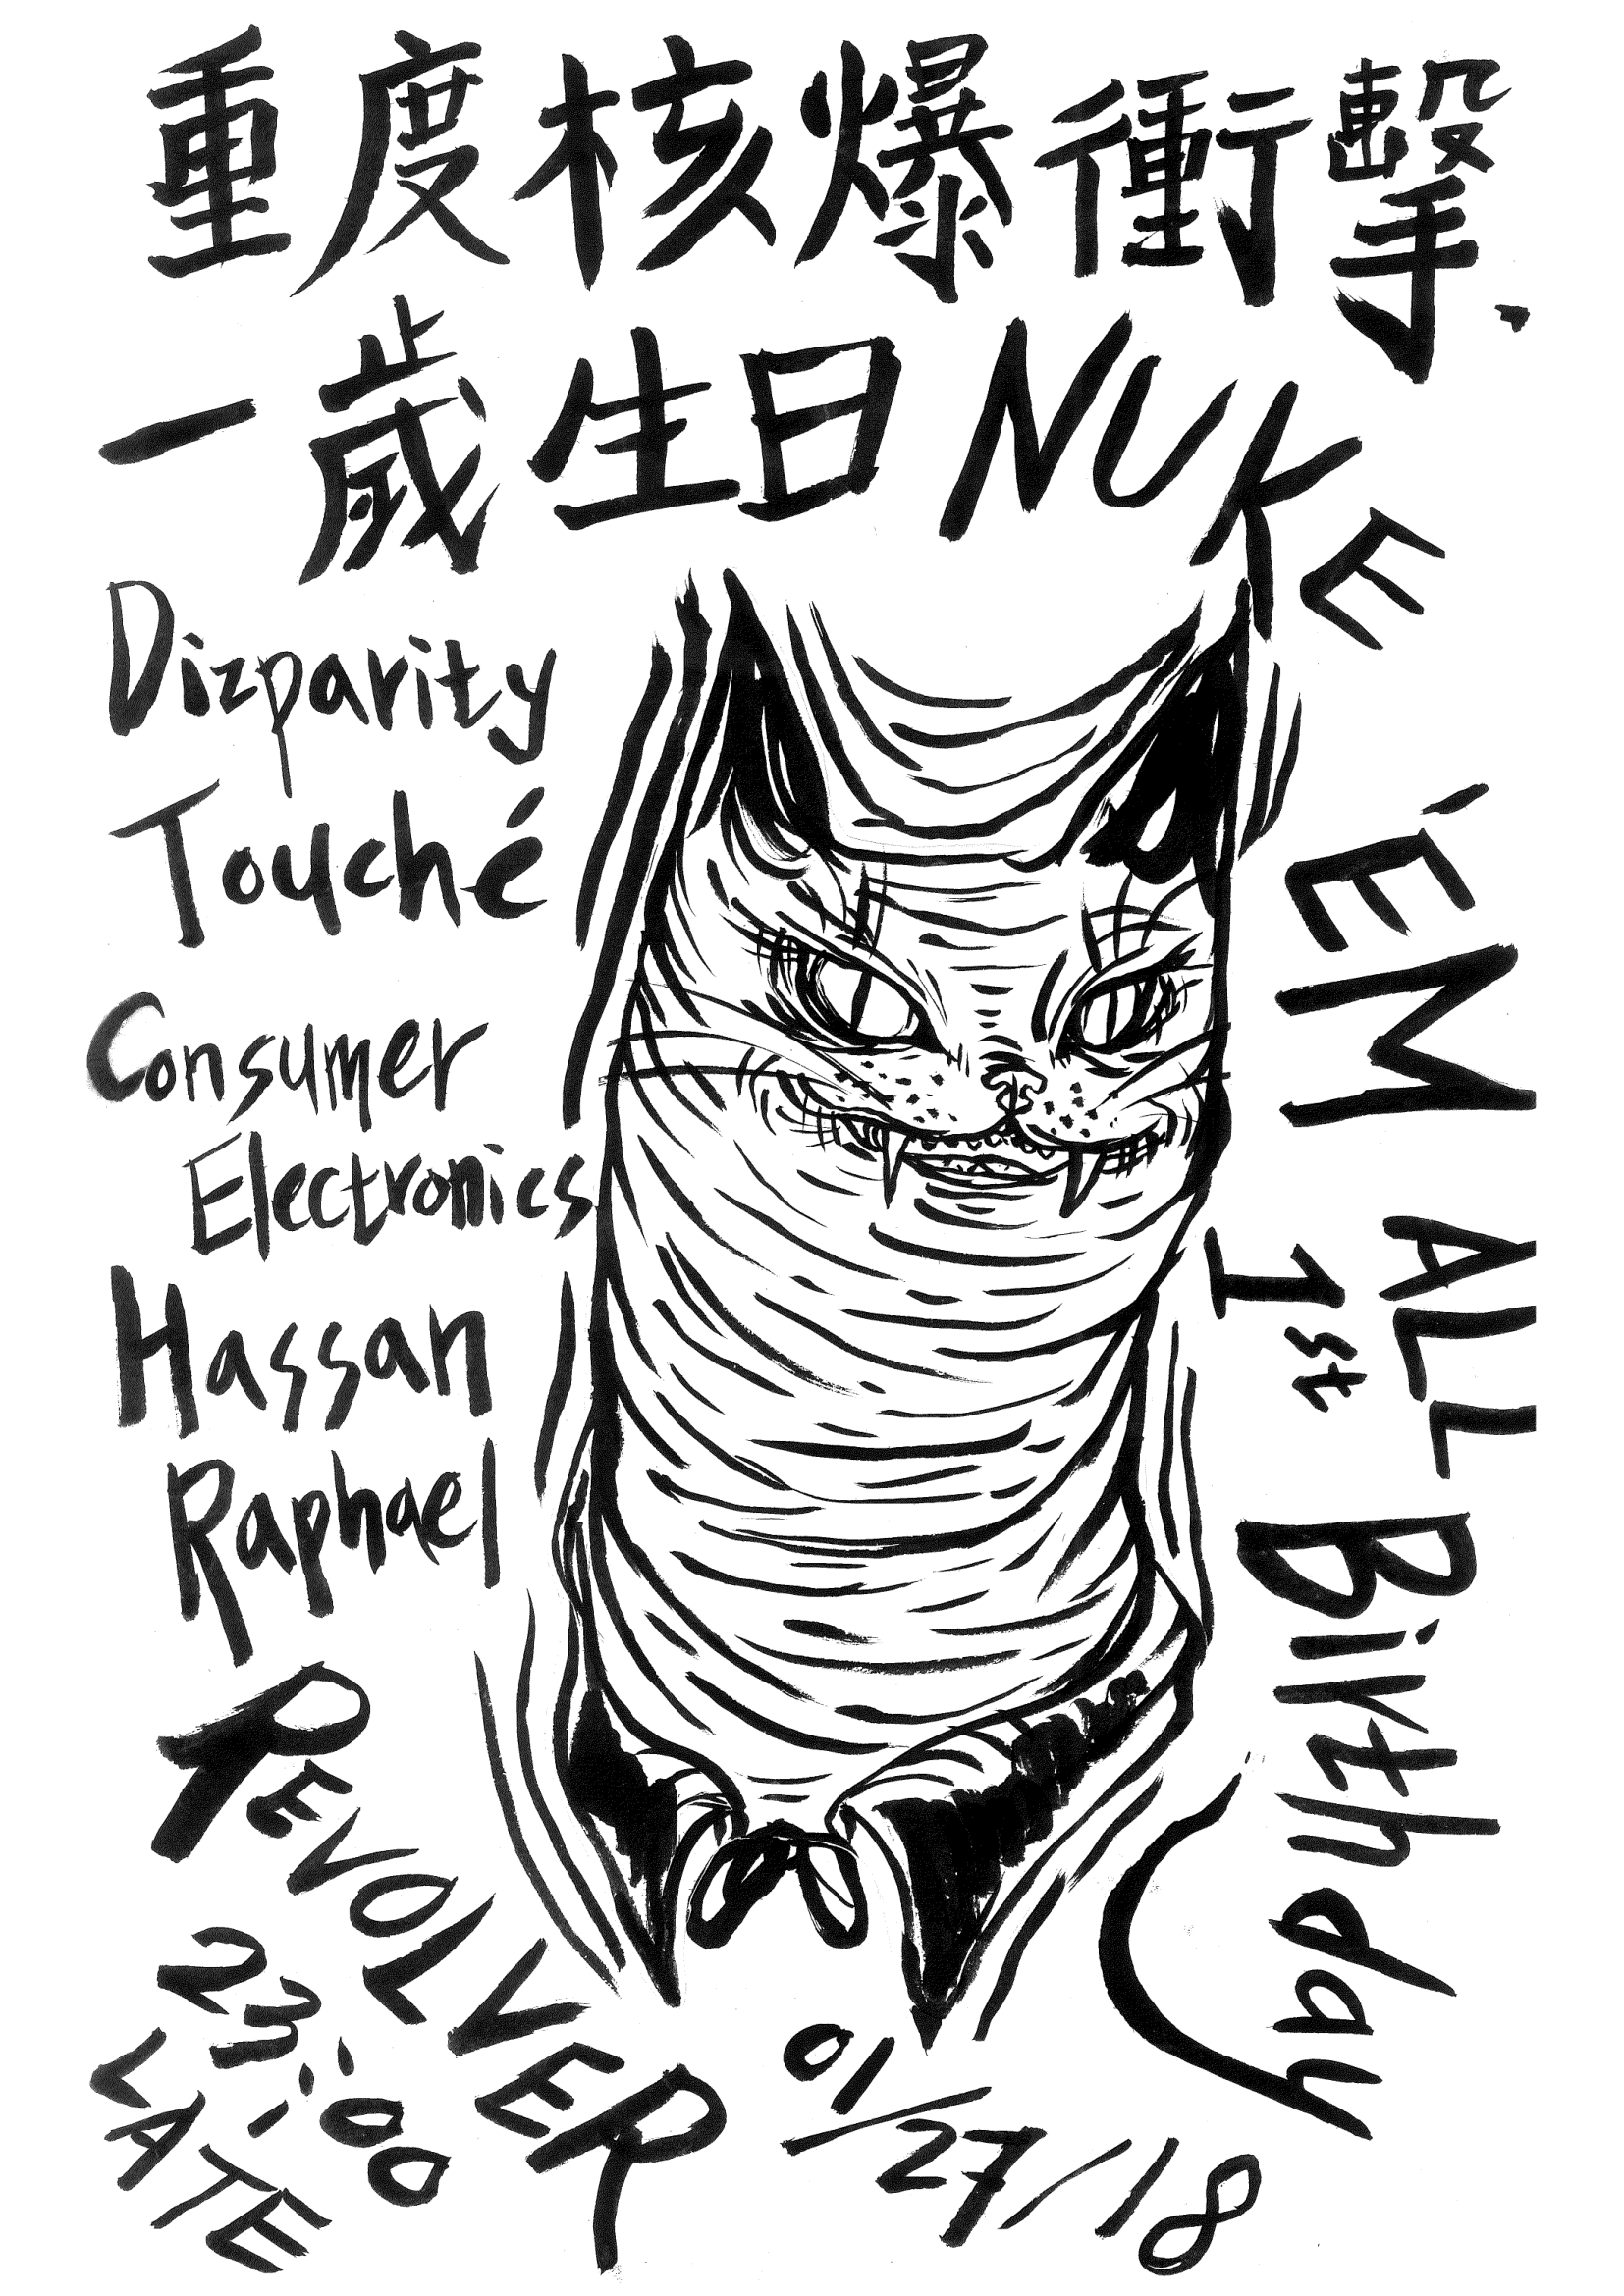 重度核爆衝擊、
一歲生日 NUKE 'EM ALL
1st Birthday
Dizparity
Touché
Consumer
Electronics
Hassan
Raphael
REVOLVER
23:00-
LATE
01/27/18